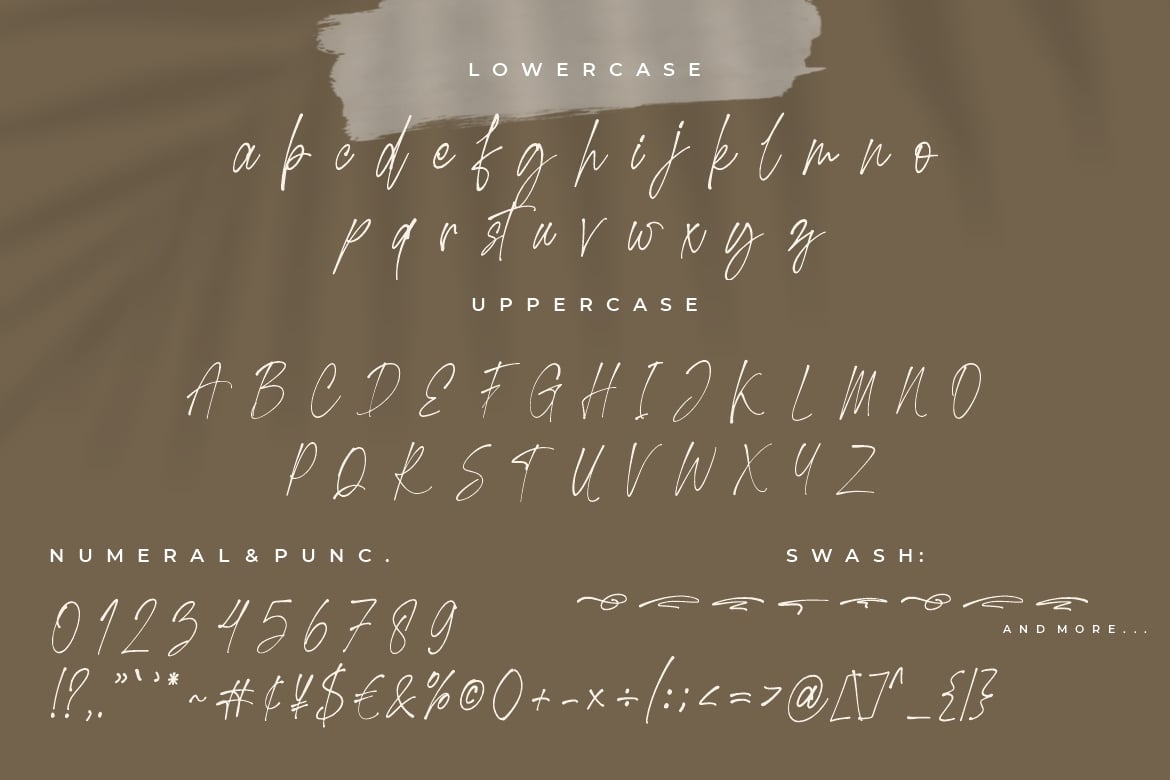 LOWERCASE
a b c d e f g h i j k l m n o
p q r s t u v w x y z
UPPERCASE
A B C D E F G H I J K L M N O
P Q R S T U V W X Y Z
NUMERAL&PUNC.
SWASH:
0 1 2 3 4 5 6 7 8 9
AND MORE...
! ? , . ” ‘ ’ * ~ # ¢ ¥ $ € & % © () + - × ÷ / : ; < = > @ [ \ ] ^ _ { | }